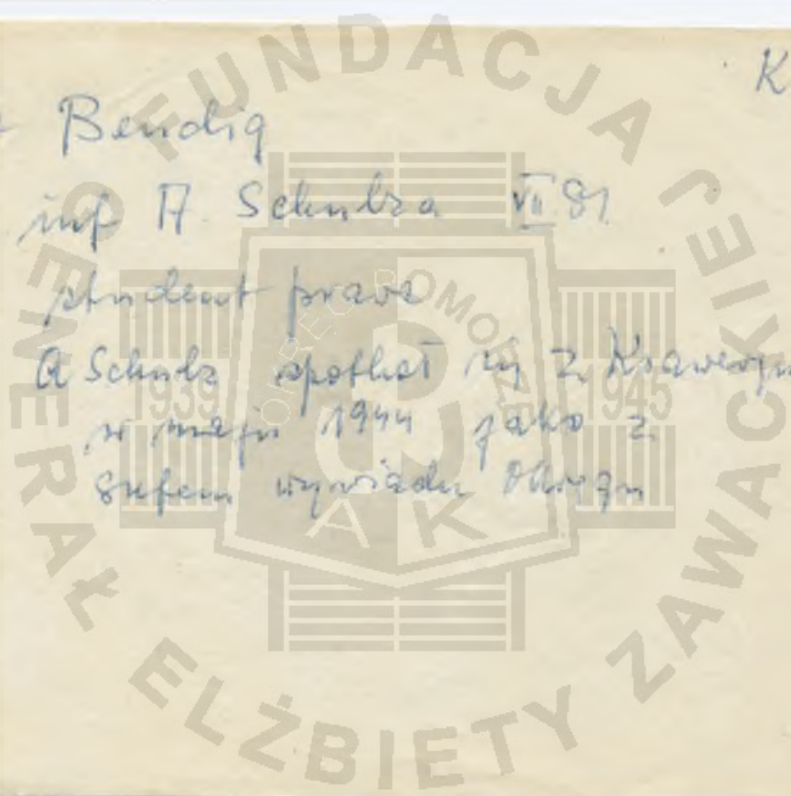 K
Bendig
inf A. Schulza VII 81
student prawa
A Schulz spotkał się z Ksawerym
w maju 1944 jako z
szefem wywiadu Okręgu
FUNDACJA
GENERAŁ ELŻBIETY ZAWACKIEJ
OKRĘG POMORZE
1939 1945
AK